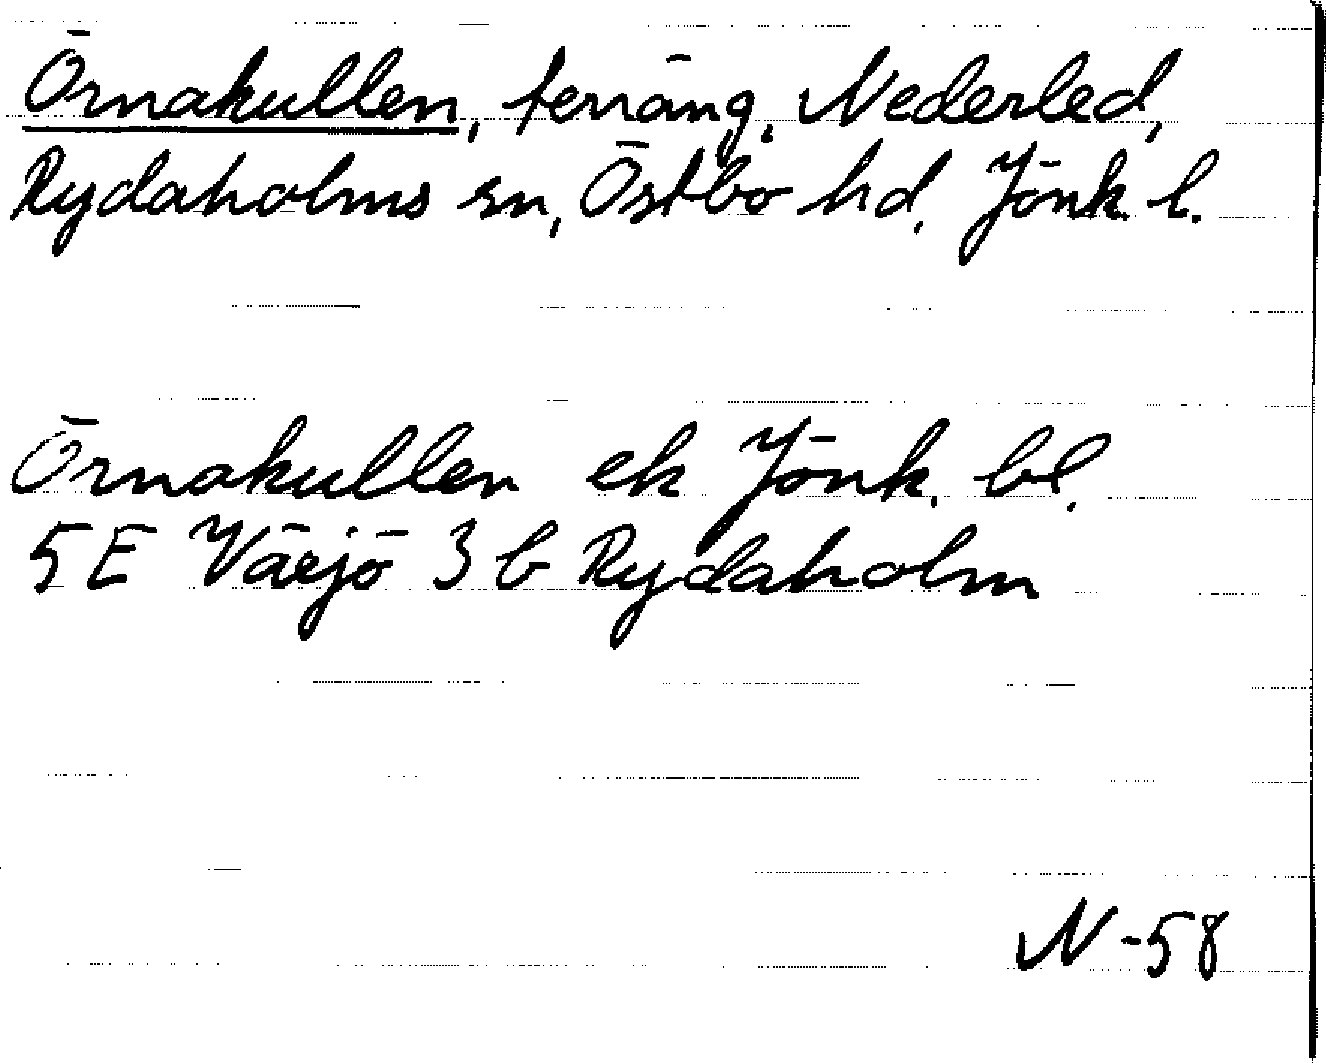 Örnakullen, terräng, Nederled,
Rydaholms sn, Östbo hd, Jönk. l.
Örnakullen ek Jönk. bl.
5E Växjö 3 b Rydaholm
N-58